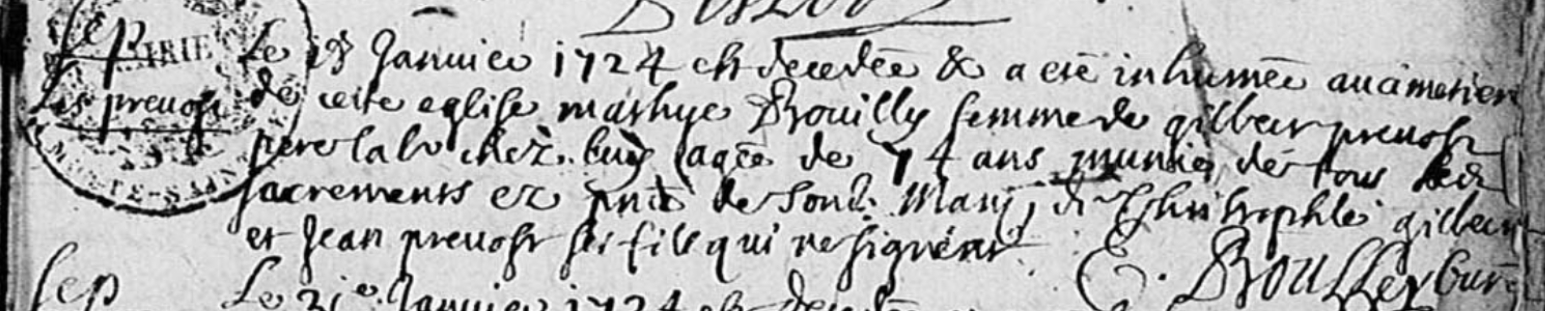 Sep
Les prevost
Le 18 Janvier 1724 est decedée & a eté inhumée au cimetiere
de ceste eglise mathye Brouilly femme de gilbert prevost
pere lab chez luy agée de 74 ans munie des tous les
sacrements en pnce de sond. Mary, de Christophle gilbert
et Jean prevost ses fils qui ne signent
E. Brousse curé
Sep Le 31e Janvier 1724 est decedée